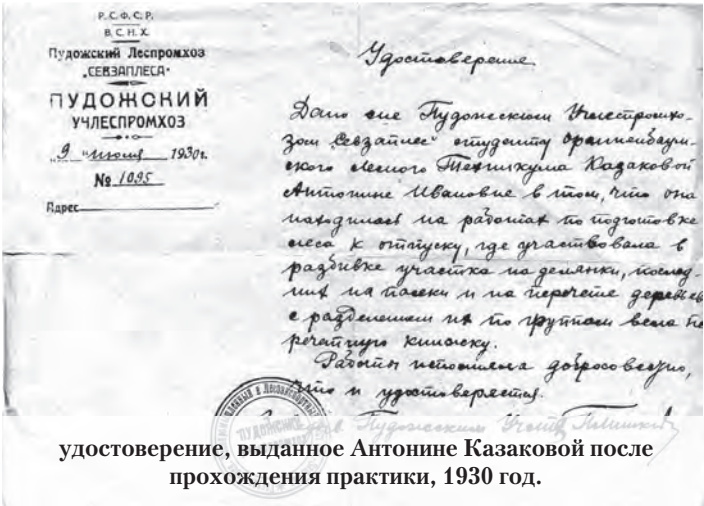 Р. С. Ф. С. Р.
В. С. Н. Х.
Пудожский Леспромхоз
„СЕВЗАПЛЕСА"
ПУДОЖСКИЙ
УЧЛЕСПРОМХОЗ
„9" июля 1930г.
№ 1095
Адрес
Удостоверение
Дано сие Пудожским Учлеспромхо-
зом „Севзаплес" студенту Ораниенбаум-
ского Лесного Техникума Казаковой
Антонине Ивановне в том, что она
находилась на работах по подготовке
леса к отпуску, где участвовала в
разбивке участка на делянки, послед-
них на пасеки и на перечете деревьев
с разделением их по группам вела пе
речетную книжку.
Работы исполняла добросовестно,
что и удостоверяется.
Пудожским
удостоверение, выданное Антонине Казаковой после
прохождения практики, 1930 год.